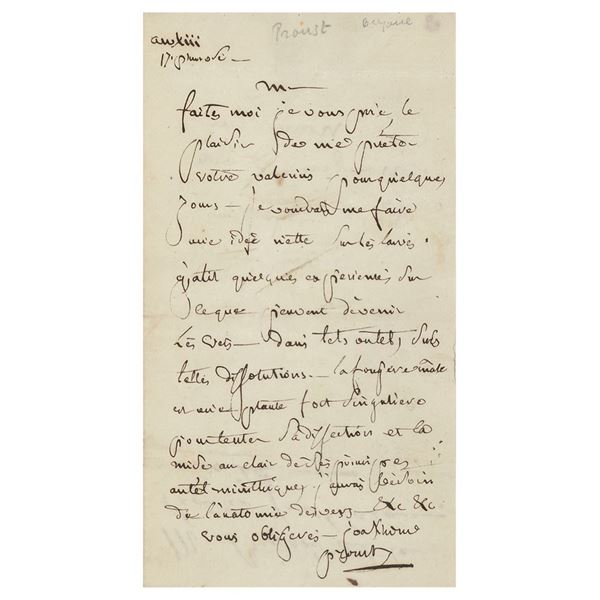 Proust
anxiii
17 pluviose —
M —
faites moi je vous prie, le
plaisir de me prêter
votre valerius pour quelques
jours — je voudrais me faire
une idée nette sur les larves.
quelques experiences sur
ce que peuvent dèvenir
Les vers — dans
telles dissolutions. — la fougere male
est une plante fort singuliere
pour tenter sa dissection et la
mise au clair de ses principes
antelminthiques, j'aurais bésoin
de l'anatomie des vers — &c &c
vous obligeres —
proust